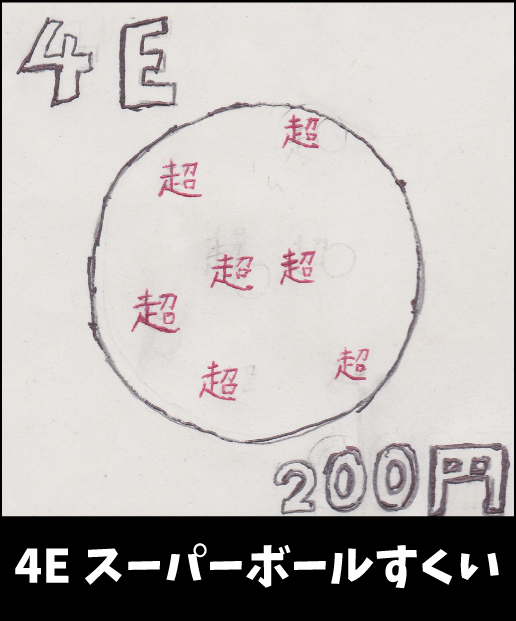 4E
超
超
超 超
超
超
超
200円
4E スーパーボールすくい